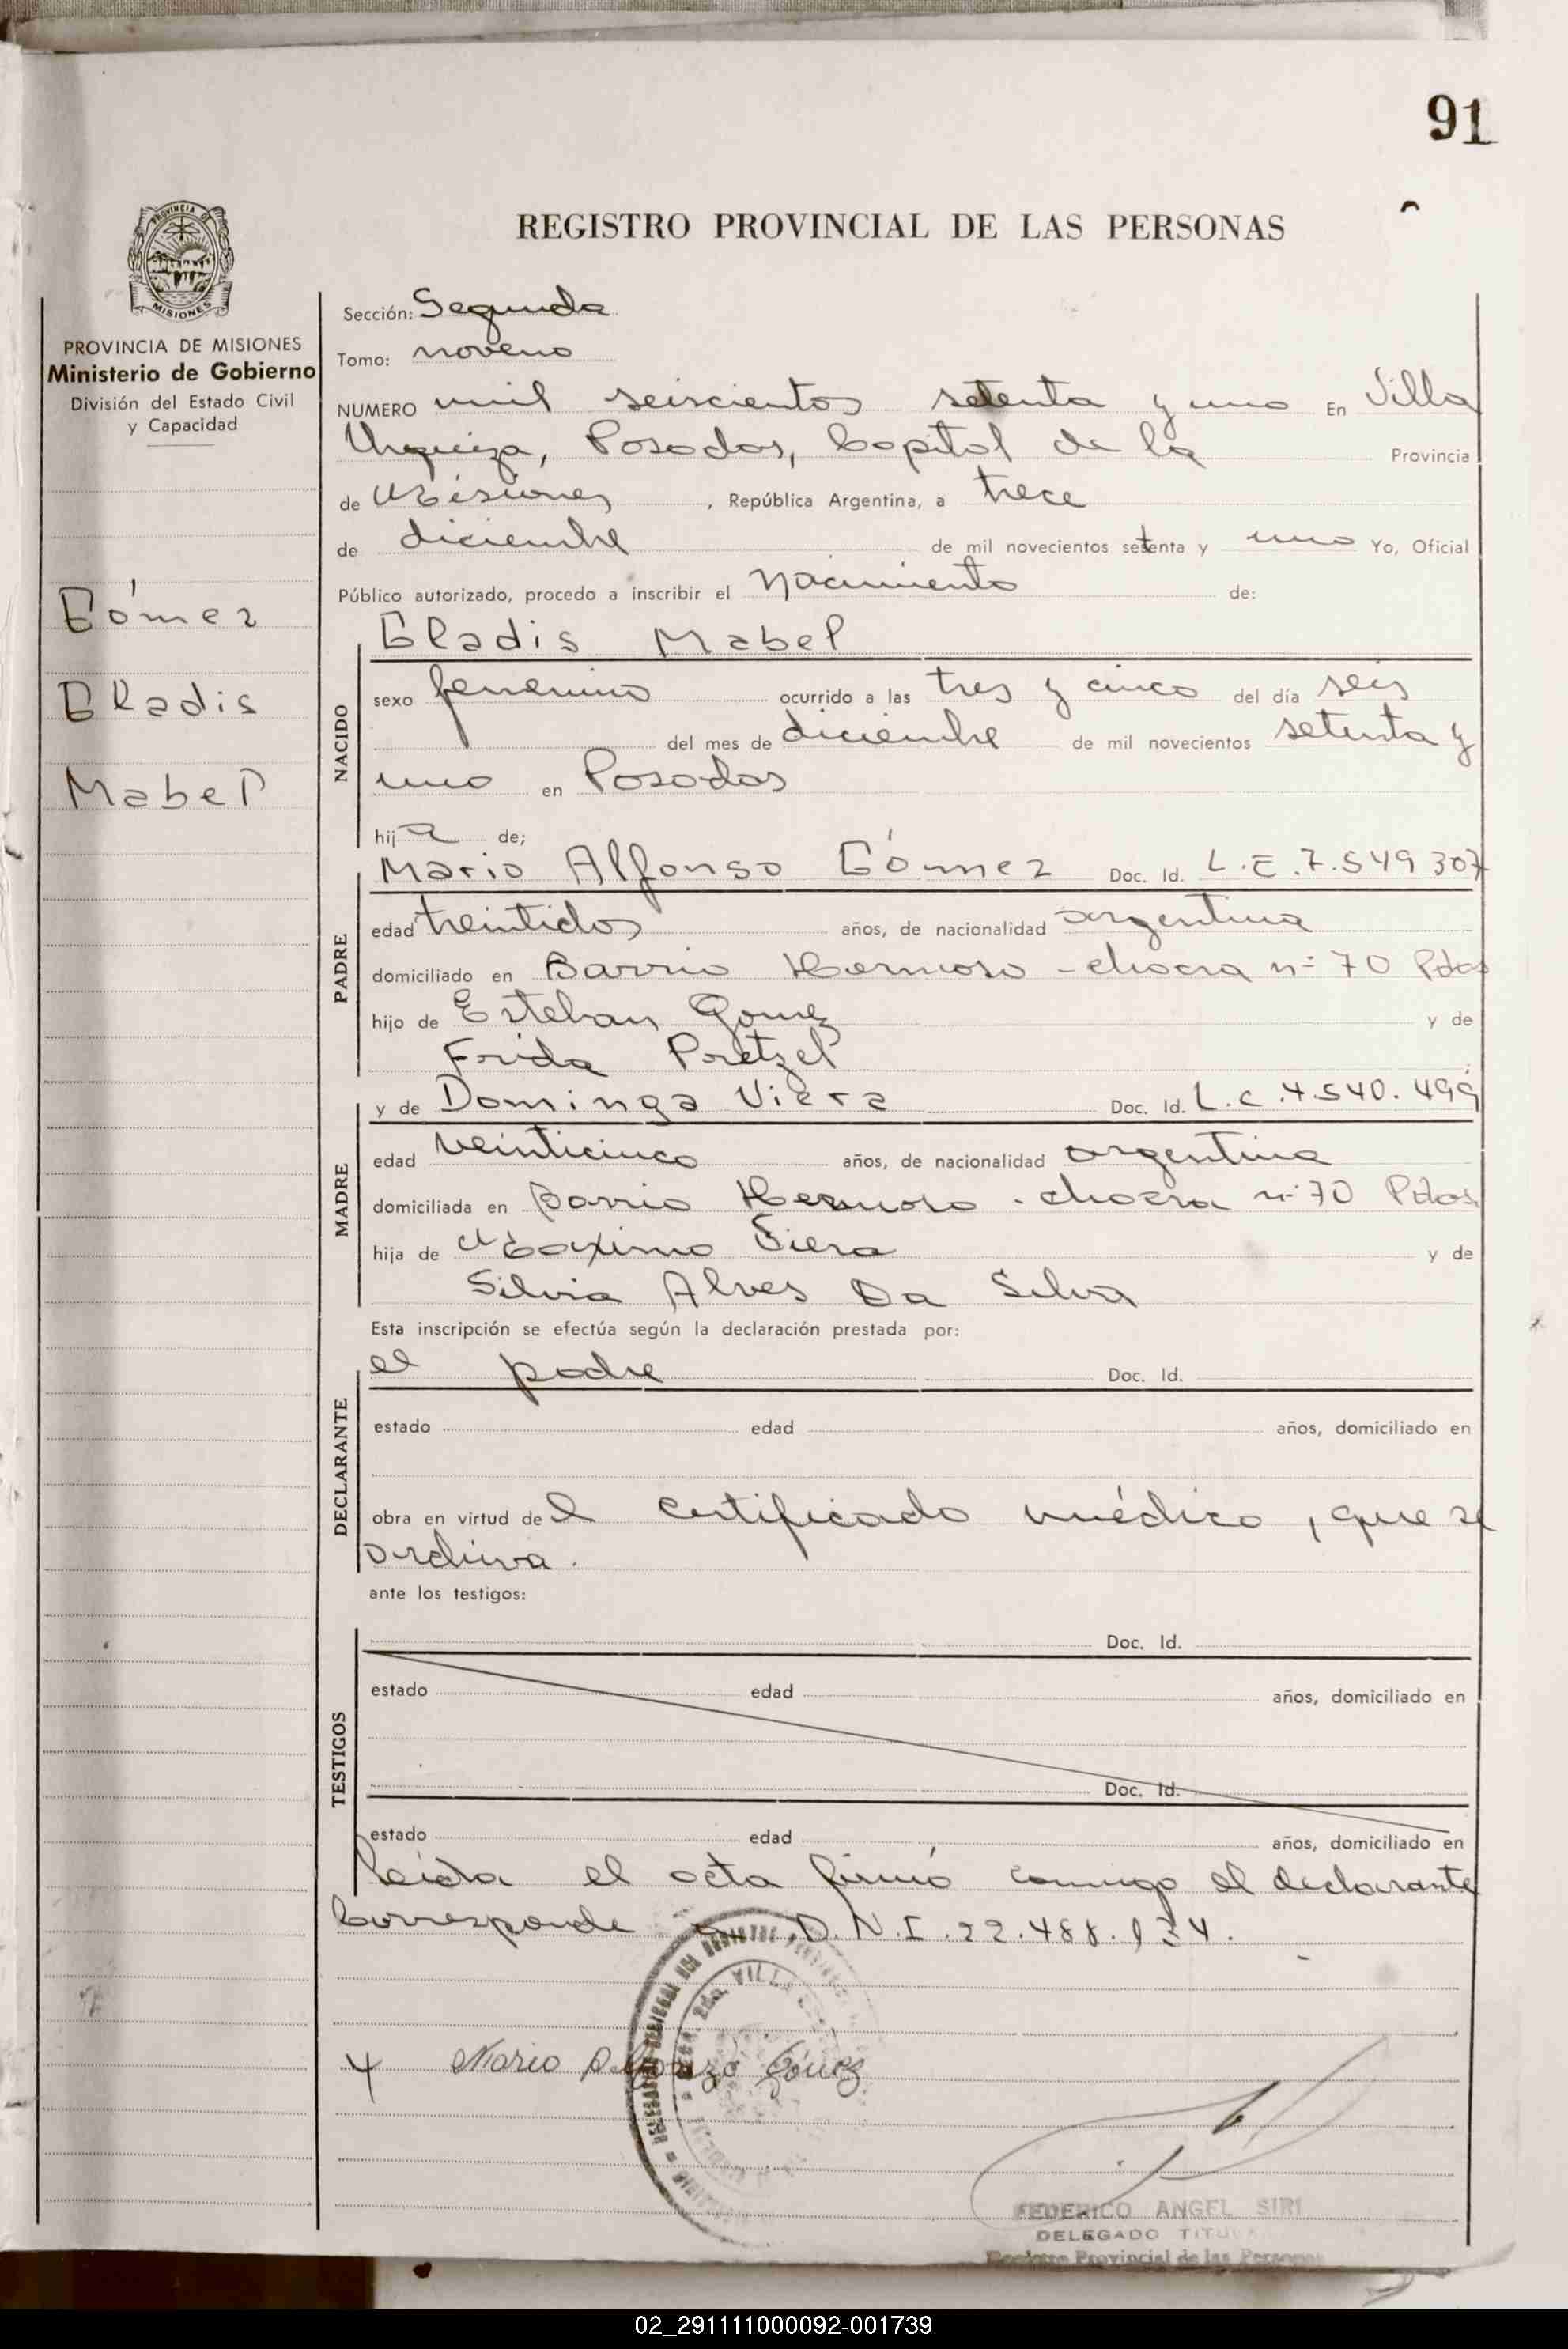 91
REGISTRO PROVINCIAL DE LAS PERSONAS
PROVINCIA DE
MISIONES
PROVINCIA DE MISIONES
Ministerio de Gobierno
División del Estado Civil
y Capacidad
Gómez
Gladis
Mabel
Sección: Segunda
Tomo: noveno
NUMERO mil seiscientos setenta y uno En Villa
Urquiza, Posadas, Capital de la Provincia
de Misiones, República Argentina, a trece
de diciembre de mil novecientos setenta y uno Yo, Oficial
Público autorizado, procedo a inscribir el Nacimiento de:
NACIDO
Gladis Mabel
sexo femenino ocurrido a las tres y cinco del día seis
del mes de diciembre de mil novecientos setenta y
uno en Posadas
hija de;
PADRE
Mario Alfonso Gómez Doc. Id. L.E.7.549 307
edad treintidos años, de nacionalidad argentina
domiciliado en Barrio Hermoso - chacra nº 70 Pdas
hijo de Esteban Gomez y de
Frida Pretzel
MADRE
y de Dominga Viera Doc. Id. L.C.4.540.499
edad veinticinco años, de nacionalidad argentina
domiciliada en Barrio Hermoso - chacra nº 70 Pdas
hija de Maximo Viera y de
Silvia Alves Da Silva
Esta inscripción se efectúa según la declaración prestada por:
DECLARANTE
el padre Doc. Id.
estado edad años, domiciliado en
obra en virtud del certificado médico, que se
archiva.
ante los testigos:
TESTIGOS
Doc. Id.
estado edad años, domiciliado en
Doc. Id.
estado edad años, domiciliado en
Leída el acta firmó conmigo el declarante
Corresponde D.N.I.22.488.134.
VILLA
Mario Alfonzo Gómez
FEDERICO ANGEL SIRI
DELEGADO TITULAR
Registro Provincial de las Personas
02_291111000092-001739